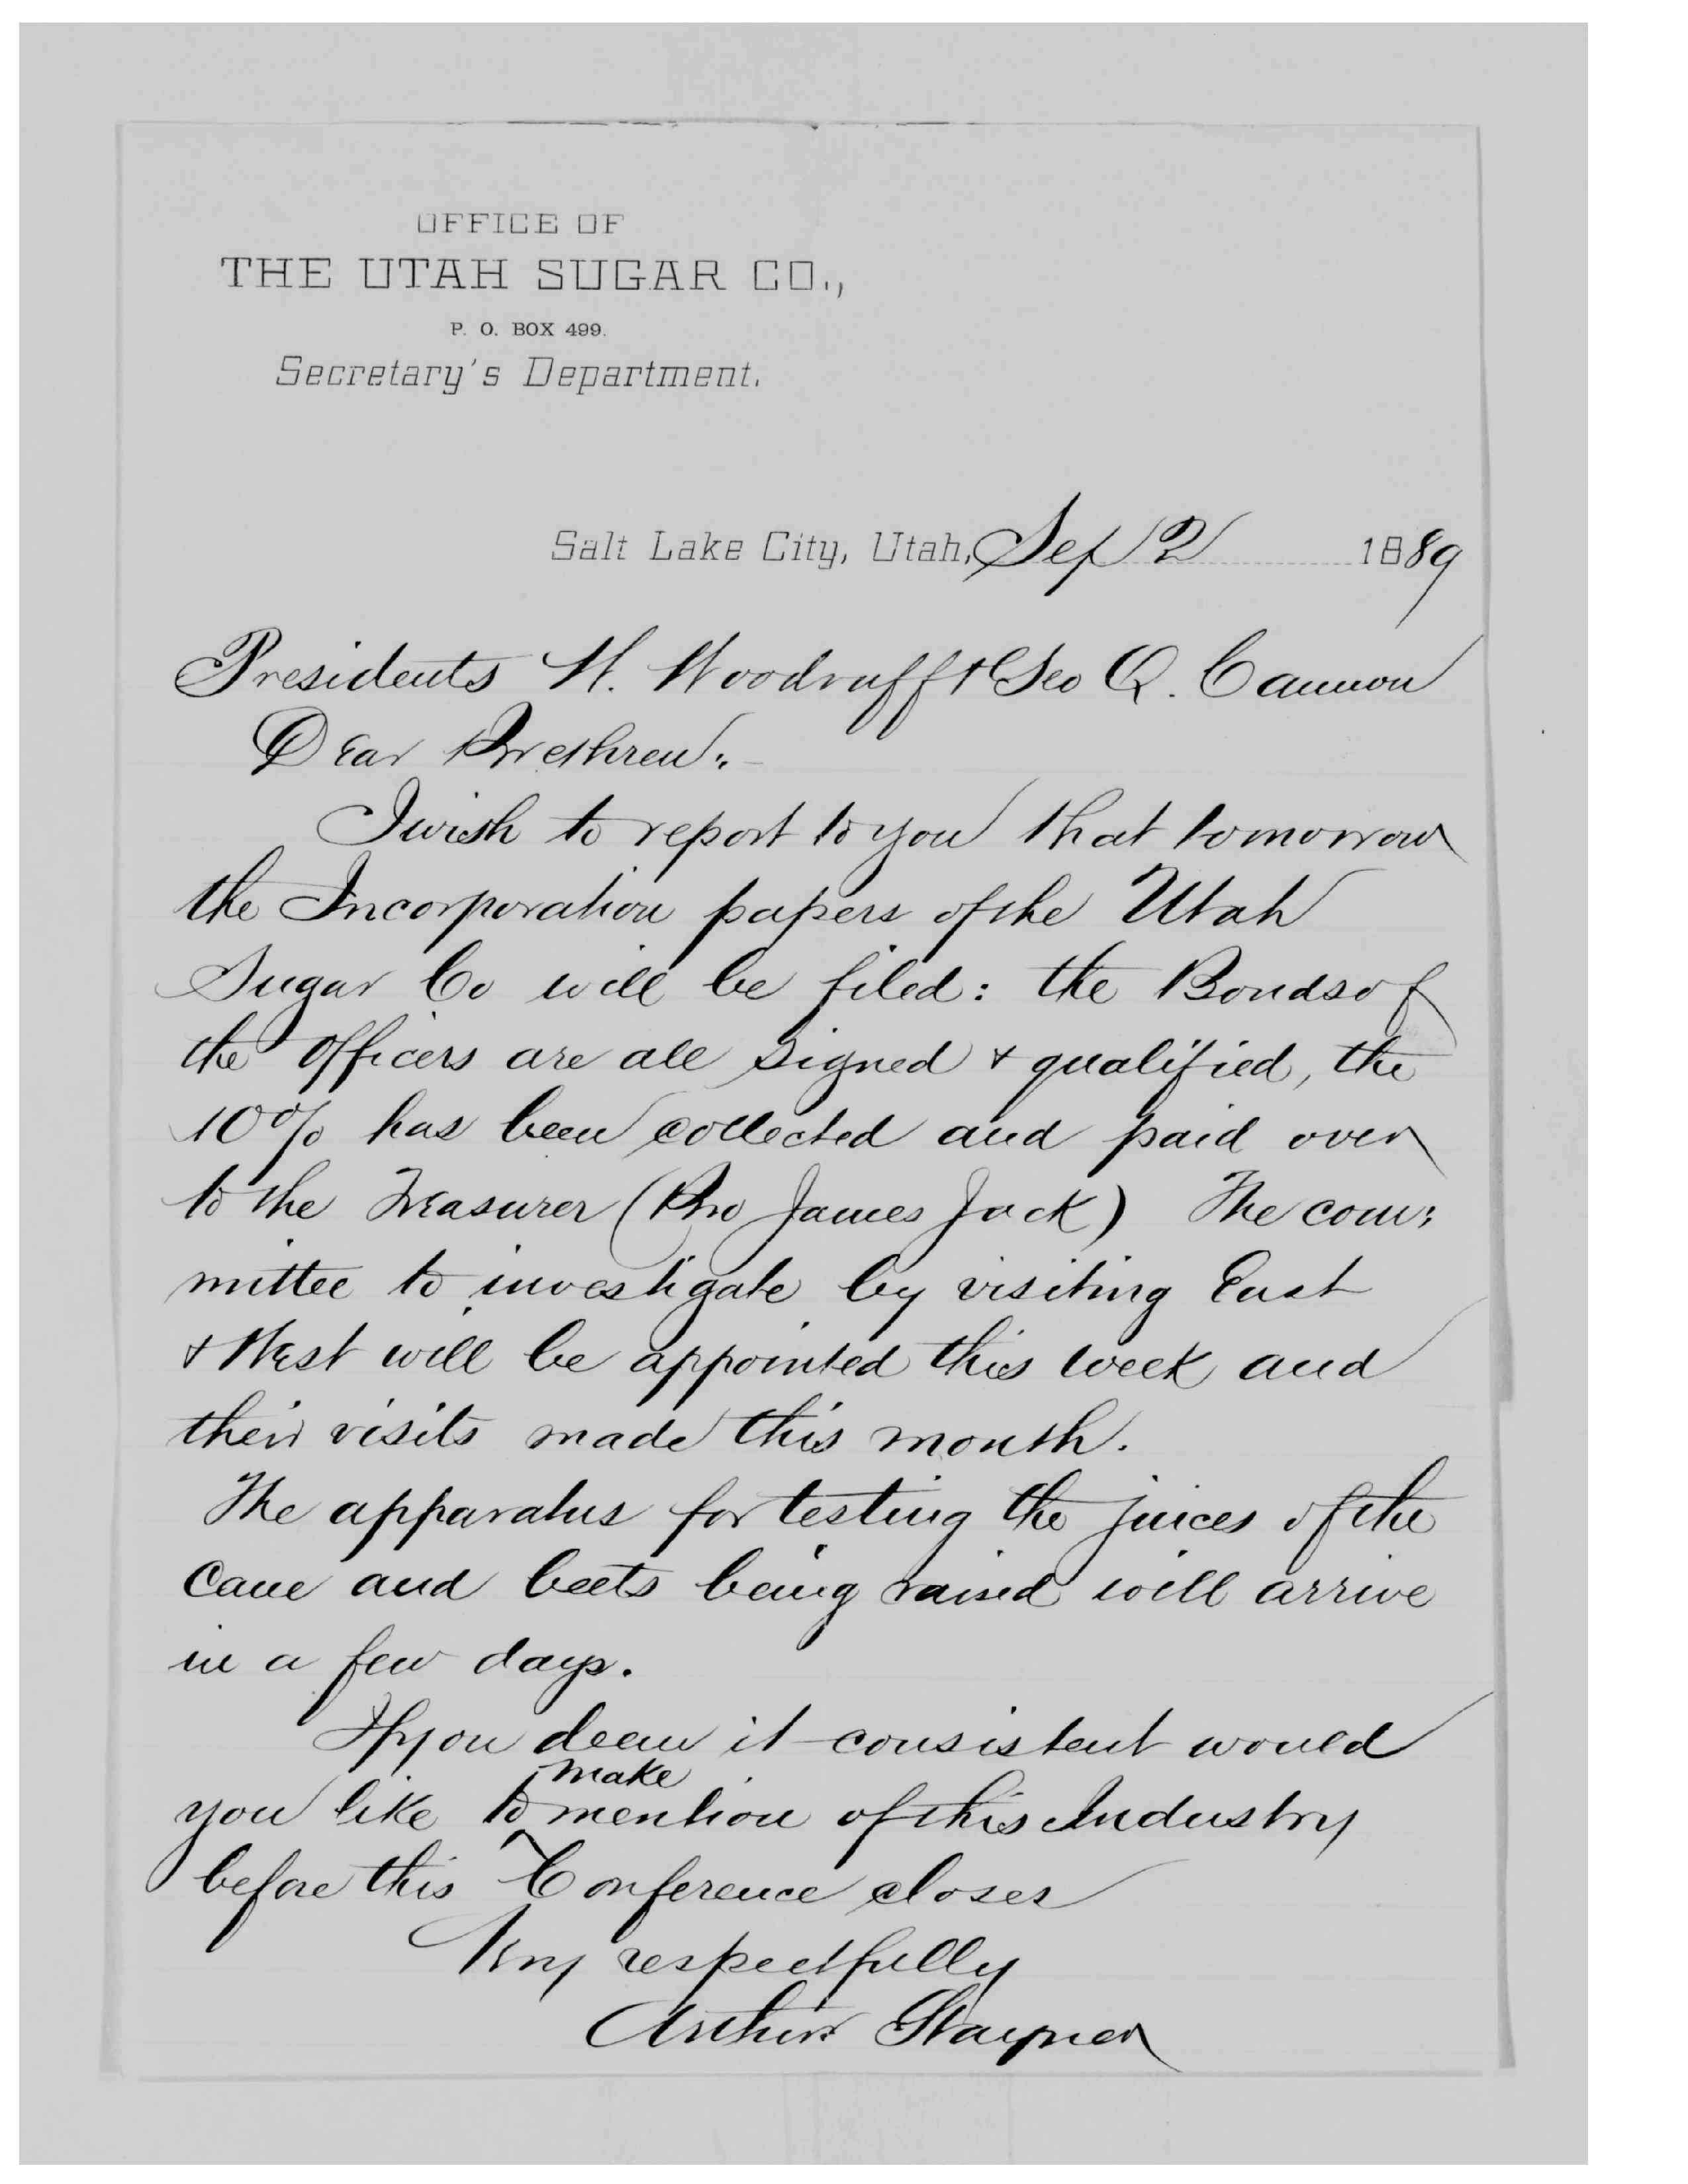 OFFICE OF
THE UTAH SUGAR CO.,
P. O. BOX 499.
Secretary's Department.
Salt Lake City, Utah, Sep 2 1889
Presidents W. Woodruff & Geo Q. Cannon
Dear Brethren:-
I wish to report to you that tomorrow
the Incorporation papers of the Utah
Sugar Co will be filed: the Bonds of
the officers are all signed & qualified, the
10% has been collected and paid over
to the Treasurer (Bro James Jack) The com:
mittee to investigate by visiting East
& West will be appointed this week and
their visits made this month.
The apparatus for testing the juices of the
Cane and beets being raised will arrive
in a few days.
If you deem it consistent would
make
you like to mention of this Industry
before this Conference closes
Very respectfully
Arthur Stayner